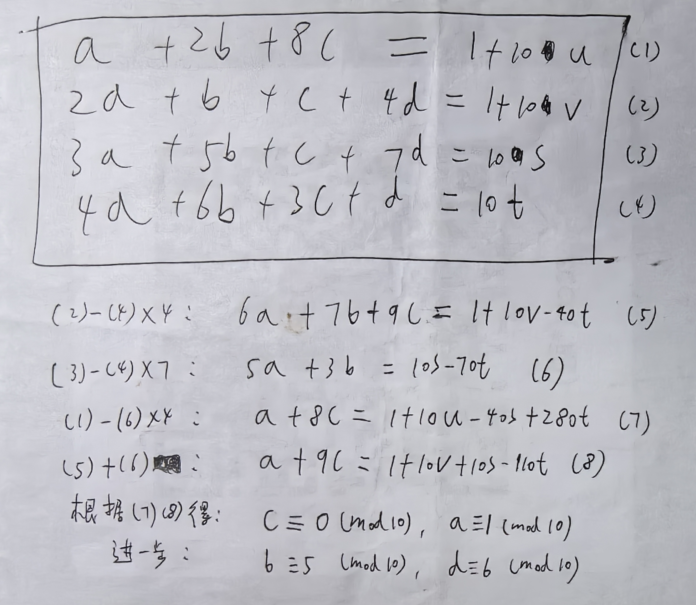 a + 2b + 8c = 1+10u (1)
2a + b + c + 4d = 1+10v (2)
3a + 5b + c + 7d = 10s (3)
4a + 6b + 3c + d = 10t (4)
(2)-(4)×4: 6a + 7b + 9c = 1+10v-40t (5)
(3)-(4)×7: 5a + 3b = 10s-70t (6)
(1)-(6)×4: a + 8c = 1+10u-40s+280t (7)
(5)+(6): a + 9c = 1+10v+10s-110t (8)
根据(7)(8)得: c≡0 (mod 10), a≡1 (mod 10)
进一步: b≡5 (mod 10), d≡6 (mod 10)